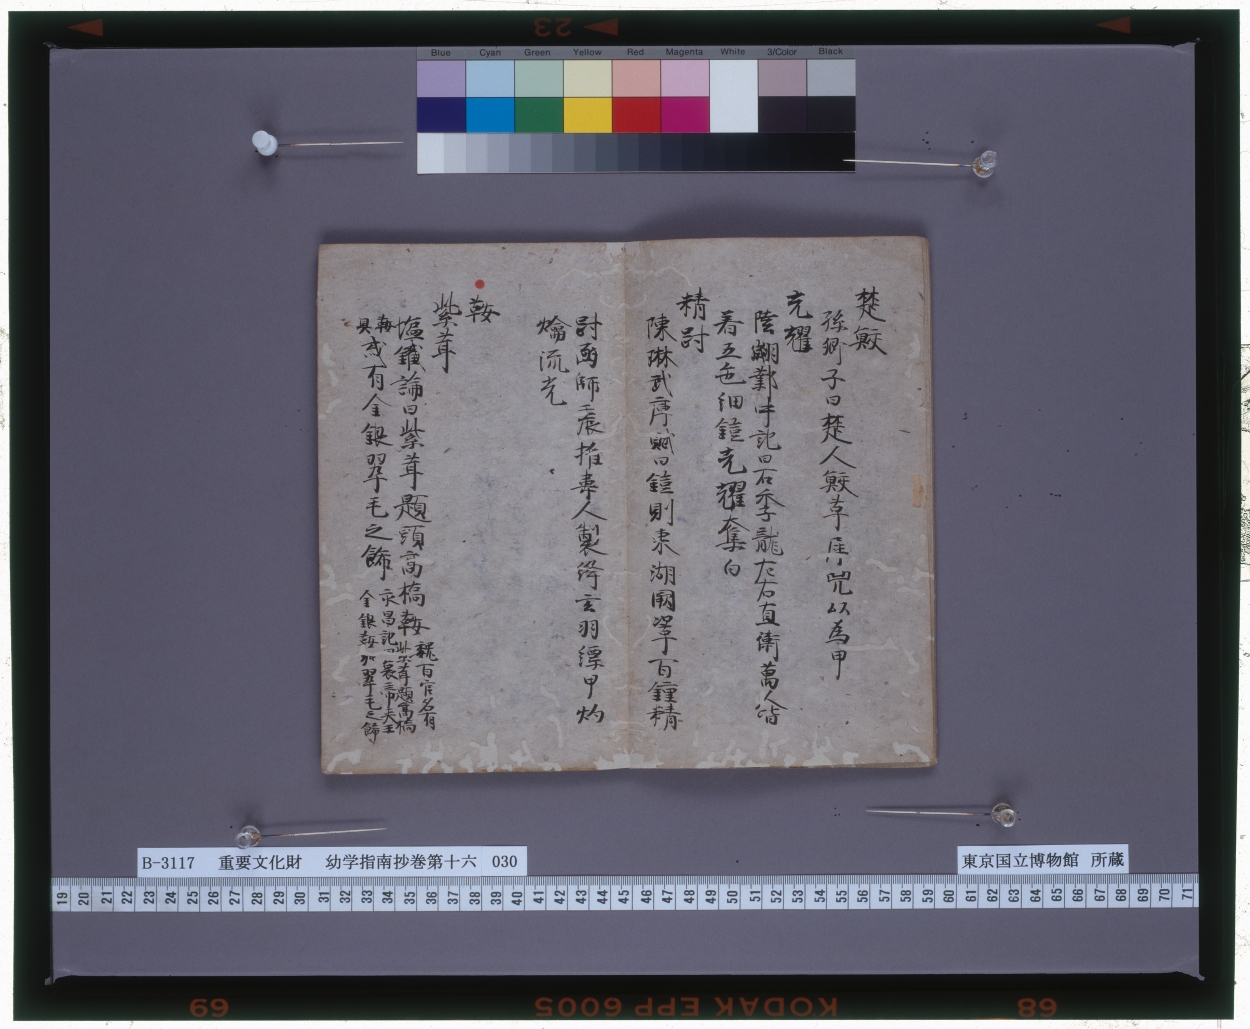 23
Blue Cyan Green Yellow Red Magenta White 3/Color Black
楚鮫
孫卿子曰楚人鮫革犀兕以為甲
光耀
陸翽鄴中記曰石季龍左右直衛萬人皆
着五色細鎧光耀奪目
精
陳琳武庫賦曰鎧則東湖闕鞏百鍊精
函師震椎人製玄羽縹甲灼
爚流光
鞍
紫茸
塩鐵論曰紫茸題頭高橋鞍
魏百官名有
紫茸題高橋
鞍
具
或有金銀翠毛之飾
永昌記曰哀牢夷王
金銀鞍加翠毛之飾
B-3117 重要文化財 幼学指南抄巻第十六 030
東京国立博物館 所蔵
19 20 21 22 23 24 25 26 27 28 29 30 31 32 33 34 35 36 37 38 39 40 41 42 43 44 45 46 47 48 49 50 51 52 53 54 55 56 57 58 59 60 61 62 63 64 65 66 67 68 69 70 71
69 KODAK EPP 6005 68